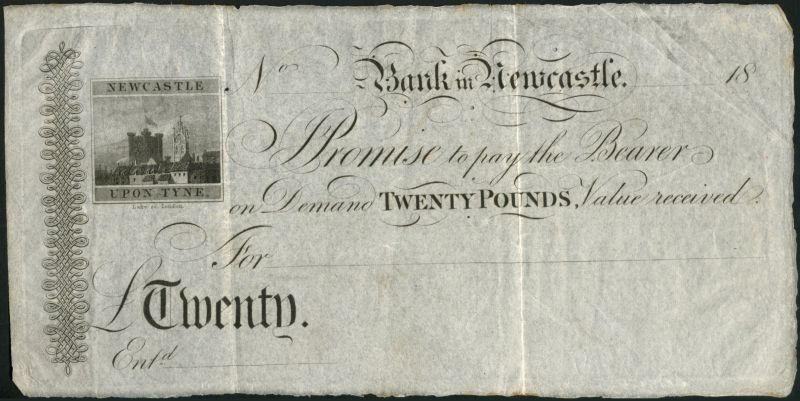 NEWCASTLE
UPON TYNE.
No Bank in Newcastle. 18
I Promise to pay the Bearer
on Demand TWENTY POUNDS, Value received.
For
£ Twenty.
Entd